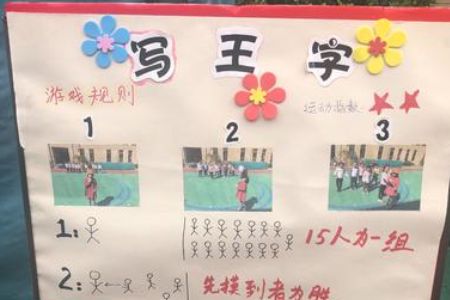 写王字
游戏规则
运动指数
1 2 3
1: 15人为一组
2: 先摸到者为胜